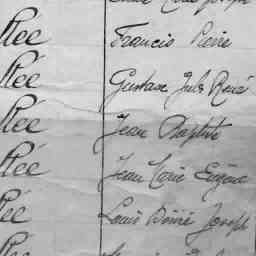 Joseph
Klée Francis Pierre
Klée Gustave Jules René
Klée Jean Baptiste
Klée Jean Marie Eugène
Klée Louis Désiré Joseph
Klée